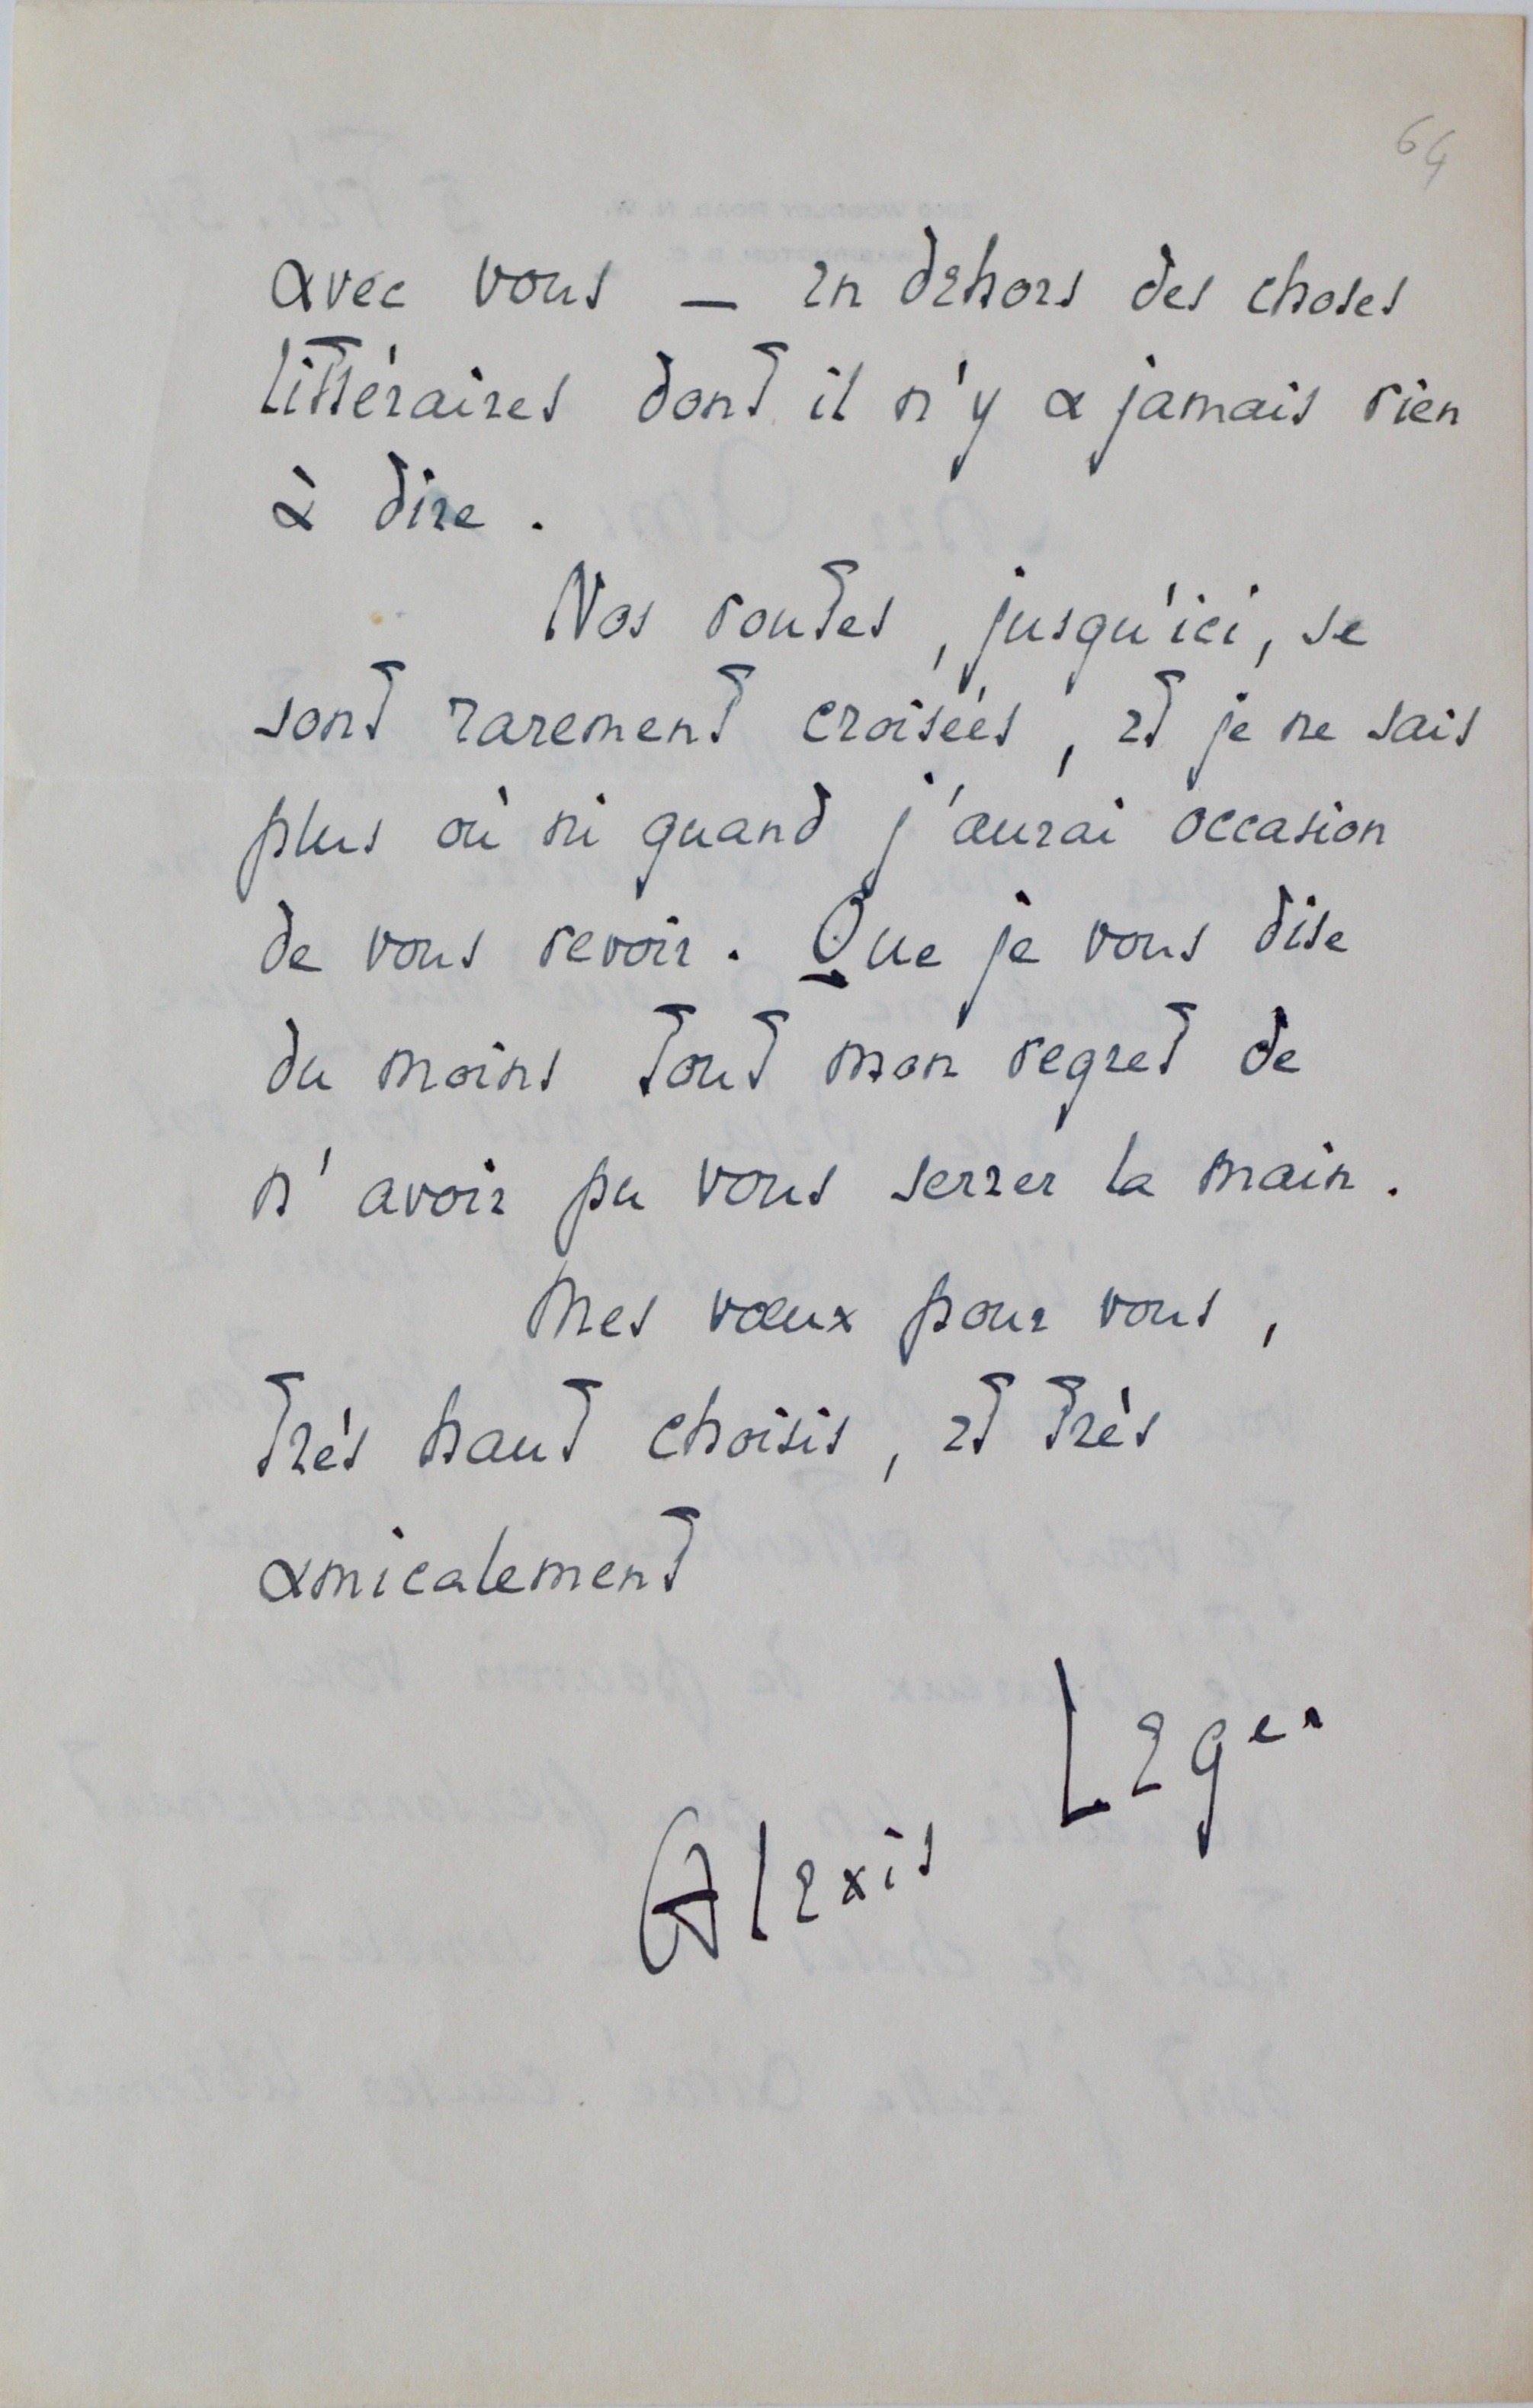 64
avec vous — en dehors des choses
littéraires dont il n'y a jamais rien
à dire.
Nos routes, jusqu'ici, se
sont rarement croisées, et je ne sais
plus où ni quand j'aurai occasion
de vous revoir. Que je vous dise
du moins tout mon regret de
n'avoir pu vous serrer la main.
Mes vœux pour vous,
très haut choisis, et très
amicalement
Alexis Leger